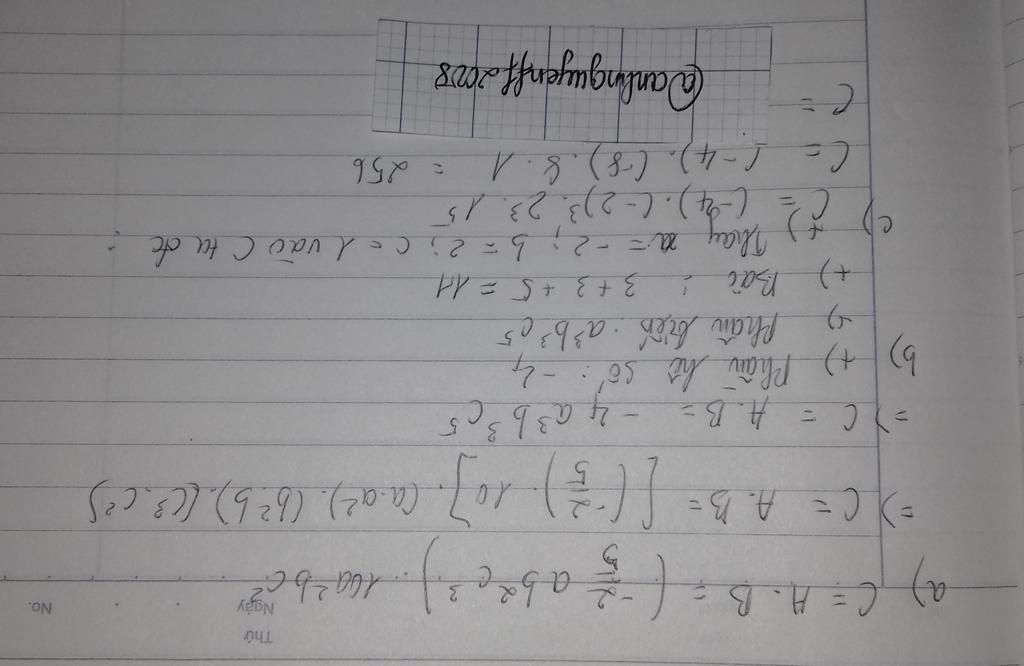 Thứ
Ngày No.
a) C = A.B = (-2/5 ab²c³) . 10a²bc²
=) C = A.B = [(-2/5) . 10] . (a.a²) . (b².b) . (c³.c²)
=) C = A.B = -4a³b³c⁵
b) +) Phần hệ số : -4
+) Phần biến : a³b³c⁵
+) Bậc : 3 + 3 + 5 = 11
c) +) Thay a = -2; b = 2; c = 1 vào C ta đc :
C = (-4) . (-2)³ . 2³ . 1⁵
C = (-4) . (-8) . 8 . 1 = 256
C =
@anhnguyenff2008